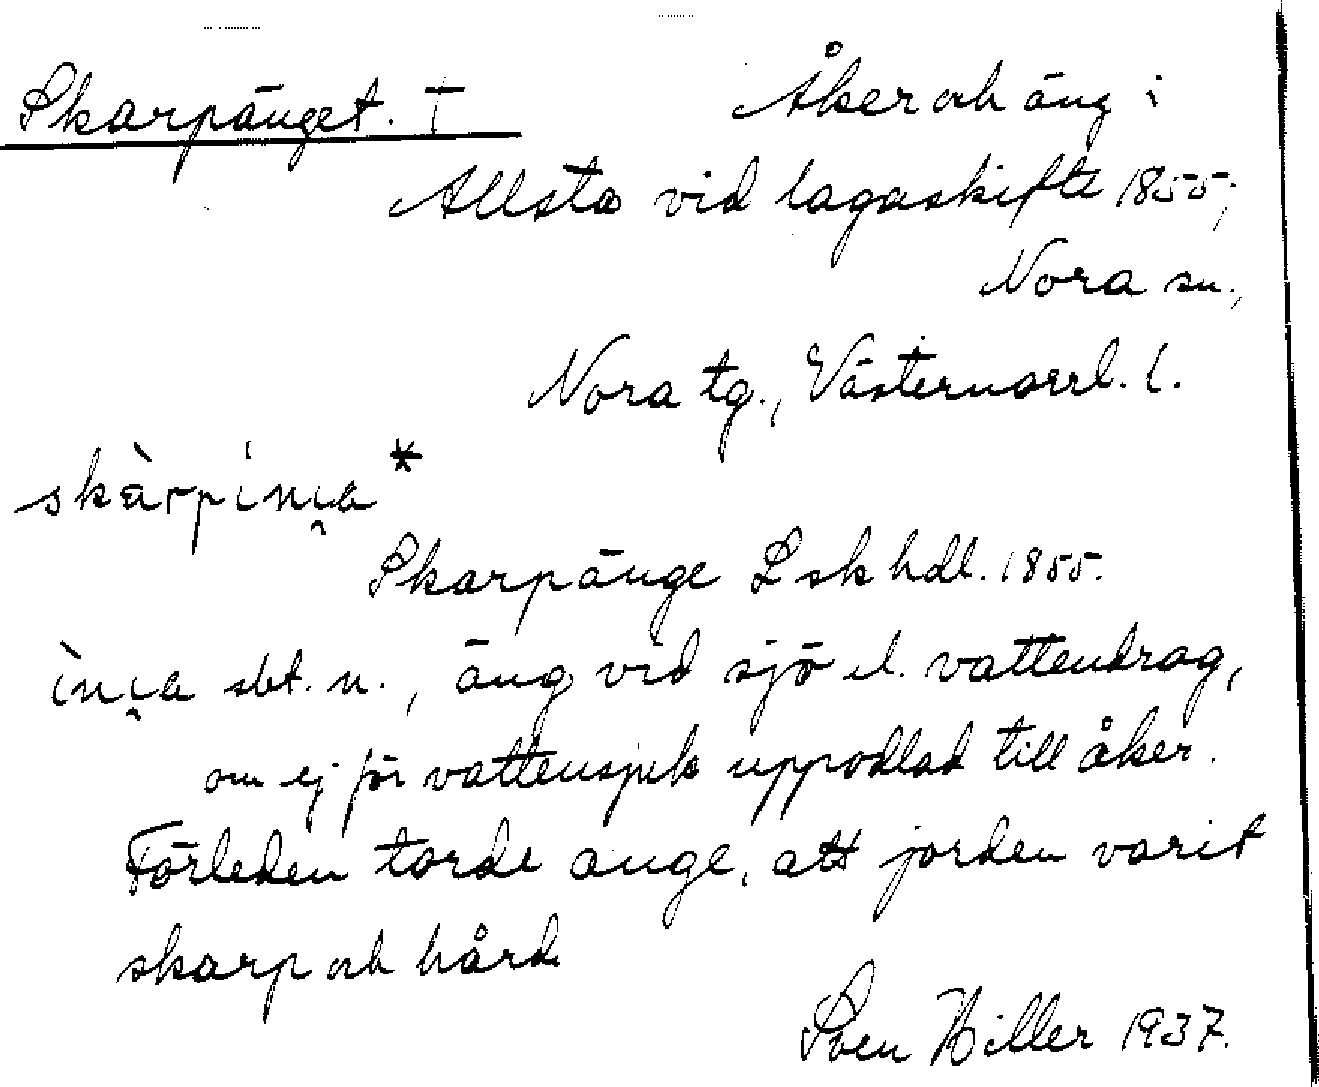 Skarpänget. † Åker och äng i
Allsta vid lagaskifte 1855;
Nora sn.,
Nora tg., Västernorrl. l.
Skarpänge L sk hdl. 1855.
sbt. n., äng vid sjö el. vattendrag,
om ej för vattensjuk uppodlad till åker.
Förleden torde ange, att jorden varit
skarp och hård
Sven Hiller 1937.